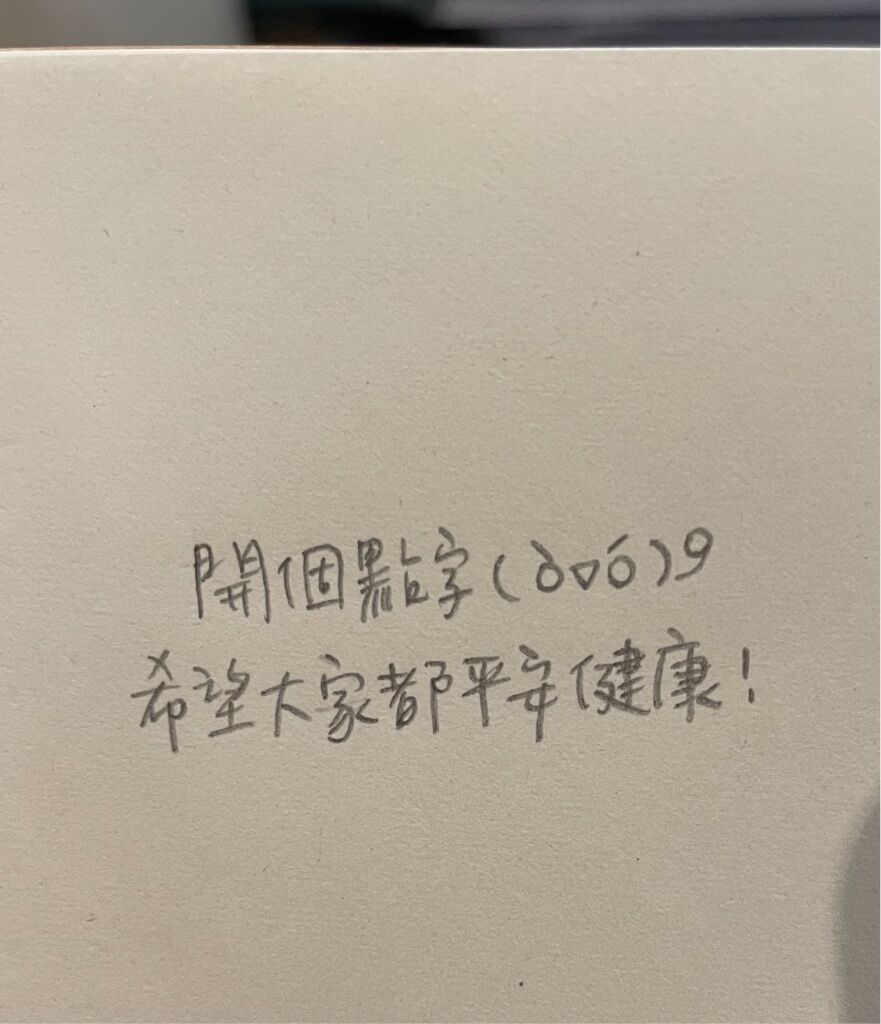 開個點字(òvó)9
希望大家都平安健康!